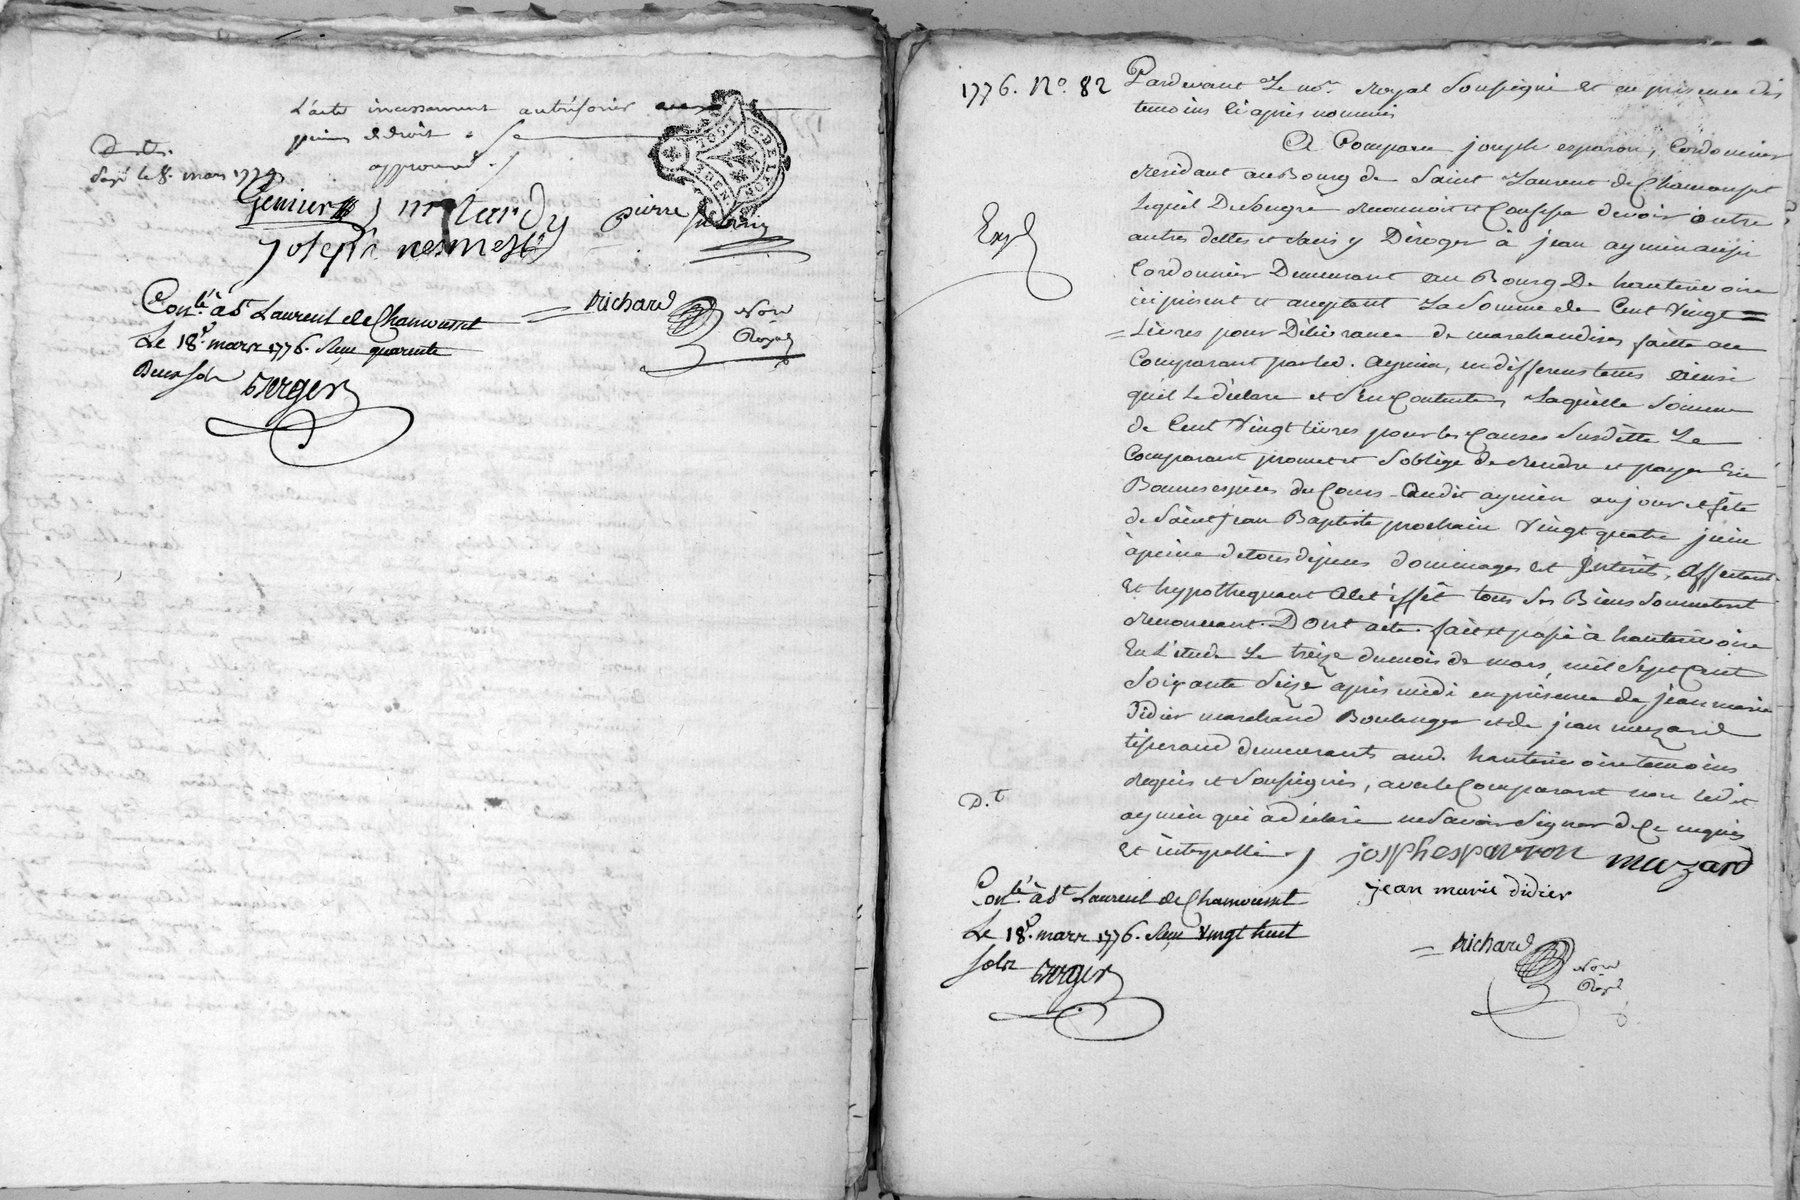 L'acte incessamment
peine de droit
approuvé
Expé le 8. mars 1779
Genier
pierre
joseph nesmes
Con.lé à St Laurent de Chamousset
Le 18e. mars 1776. Reçu quarente
Deux sols
Berger
= Richard
Nore
Royal
GDELYON
1776. No. 82
Pardevant Le nore. Royal Soussigné et en presence des
temoins Ci après nommés
A Comparu joseph esparon, Cordonnier
Residant au Bourg de Saint Laurent de Chamousset
Lequel De Son gré Reconnoit et Confesse devoir outre
autres dettes et Sans y Déroger à jean aymin aussi
Cordonnier Demeurant au Bourg De hauterivoire
ici présent et acceptant La Somme de Cent Vingt =
= Livres pour Délivrance de marchandises faitte au
Comparant par led. aymin, en differens tems ainsi
qu'il Le déclare et S'en Contente, Laquelle Somme
de Cent Vingt livres pour les Causes Susditte Le
Comparant promet et S'oblige de Rendre et payer En
Bonnes espèces du Cours audit aymin au jour et fête
de Saint jean Baptiste prochain Vingt quatre juin
à peine de tous dépens dommages et Interêts, affectant
Et hypothequant à Cet effêt tous Ses Biens Soumettant
Renonceant. Dont acte. fait et passé à hauterivoire
En L'etude Le treize du mois de mars, mil Sept Cent
Soixante Seize après midi en présence de jean marie
Didier marchand Boulanger et de jean muzard
tisserand demeurants aud. hauterivoire temoins
Requis et Soussignés, avec le Comparant non led it
aymin qui a déclaré ne Savoir Signer de Ce requis
Et interpellé
Exp
D.t
josphesparron
muzard
jean marie didier
Con.lé à St Laurent de Chamousset
Le 18e. mars 1776. Reçu Vingt huit
sols
Berger
= Richard
Nore
Royl